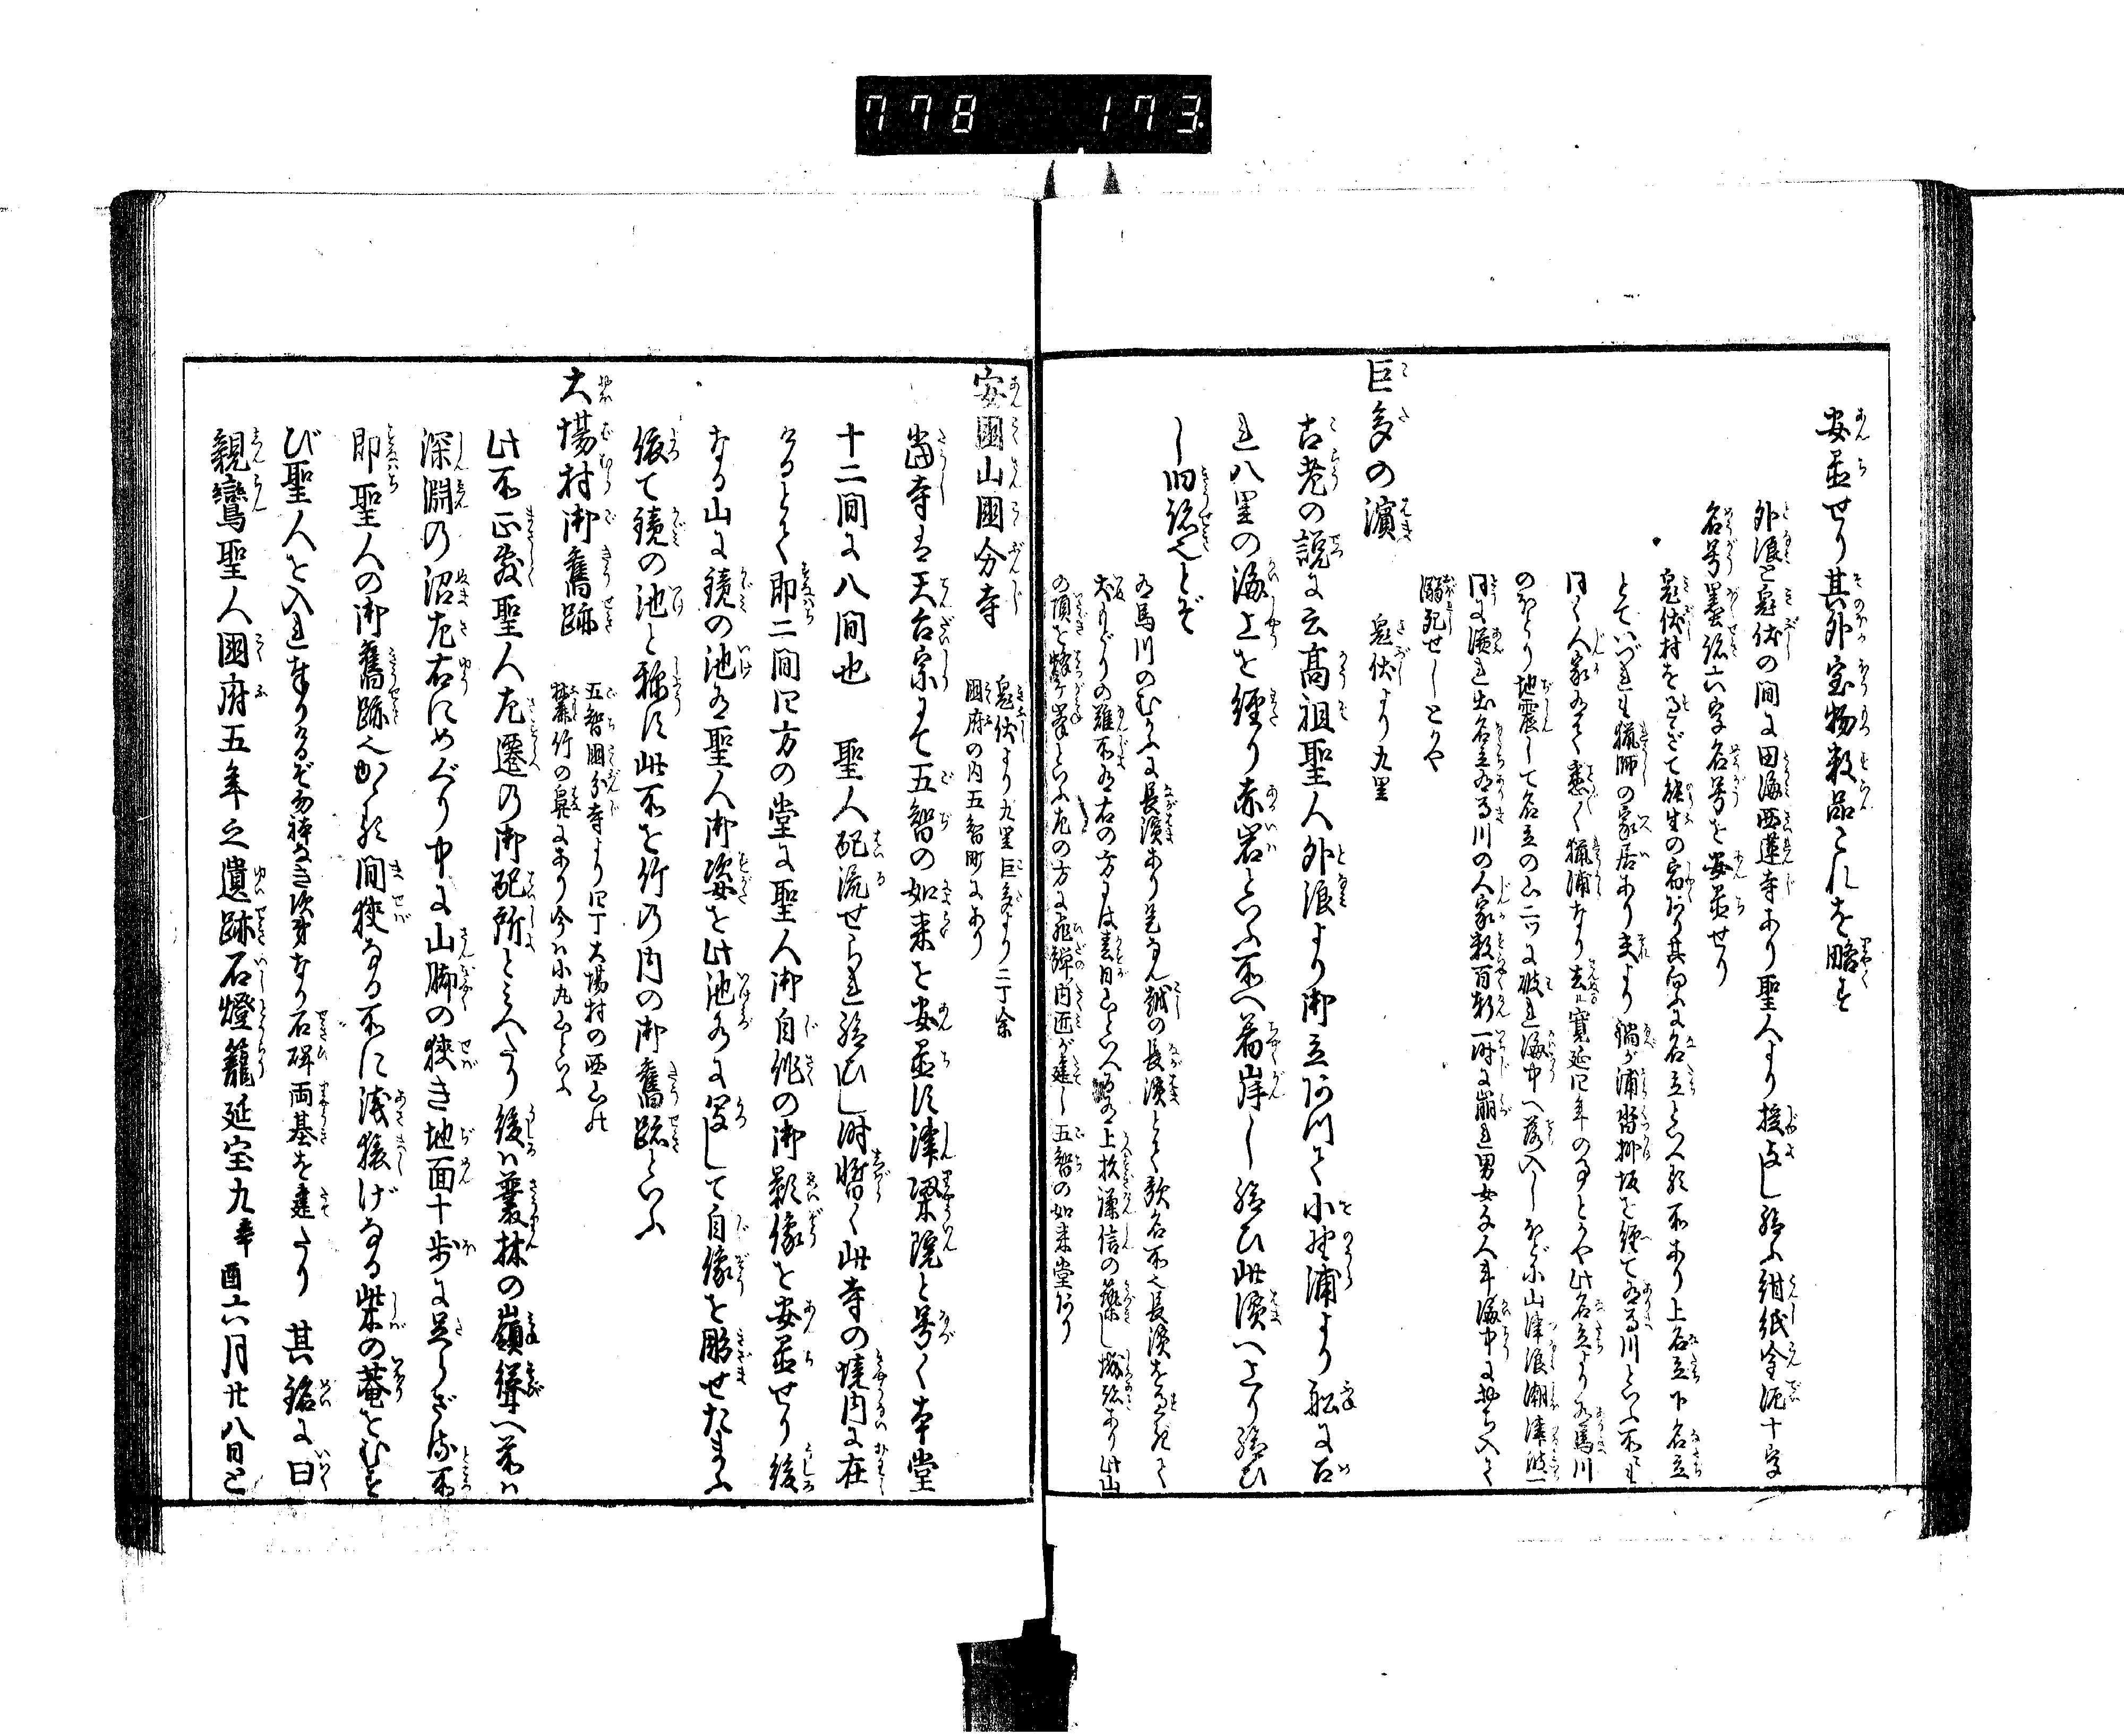 778 173
安置せり其外宝物数品これを略す
外浪と鬼伏の間に田海西蓮寺あり聖人より授与し給ふ紺紙金泥十字
名号墨跡六字名号を安置せり
鬼伏村を過ぎて能生の宿なり其向ふに名立といへる所あり上名立下名立
とていづれも猟師の家居あり夫より鍋が浦沓掛坂を経て有馬川といふ所も
同く人家有て悉く猟浦なり去ル寛延四年の事とかや此名立より有馬川
のほとり地震して名立の山二ツに破れ海中へ落入しほどに山津浪潮津波一
同に漲れ出名立有馬川の人家数百軒一時に崩れ男女多人年海中に落ち入て
溺死せしとかや
巨多の濱 鬼伏より九里
古老の説に云高祖聖人外浪より御立ありて小野浦より船に召
れ八里の海上を経り赤岩といふ所へ着岸し給ひ此濱へ上り給ひ
し旧跡也とぞ
有馬川のむかふに長濱あり是なん越の長濱とて歌名所也長濱を過ぎて
大もどりの難所有右の方には春日山といへる有上杦謙信の築し城跡あり此山
の頂を鉢ヶ峯といふ左の方に飛弾内匠が建し五智の如来堂あり
安國山國分寺 鬼伏より九里巨多より二丁余
國府の内五智町にあり
當寺は天台宗にて五智の如来を安置し津梁院と号く本堂
十二間に八間也 聖人配流せられ給ひし時暫く此寺の境内に在
けるとて即二間四方の堂に聖人御自作の御影像を安置せり後
なる山に鏡の池有聖人御姿を此池水に写して自像を彫せたまふ
依て鏡の池と称す此所を竹の内の御舊跡といふ
大場村御舊跡 五智國分寺より四丁大場村の西山の
麓竹の鼻にあり今は小丸山といふ
此所正敷聖人左遷の御配所とみへたり後は叢林の嶺聳へ前は
深淵の沼左右にめぐり中に山脚の狭き地面十歩に足らざる所
即聖人の御舊跡也かゝる間狭なる所に浅猿げなる柴の菴をむす
び聖人を入れ奉りけるぞ勿体なき次第なり石碑両基を建たり 其銘に曰
親鸞聖人國府五年之遺跡石燈籠延宝九辛酉六月廿八日と